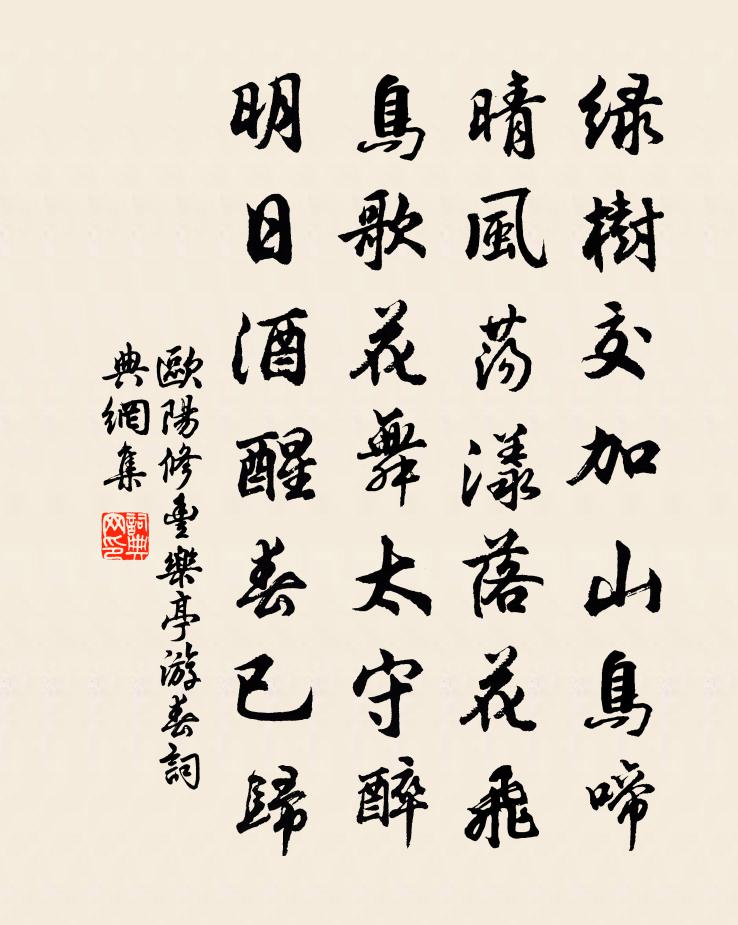 緑樹交加山鳥啼
晴風蕩漾落花飛
鳥歌花舞太守醉
明日酒醒春已歸
歐陽修豐樂亭游春詞
典網集
詞典
网印